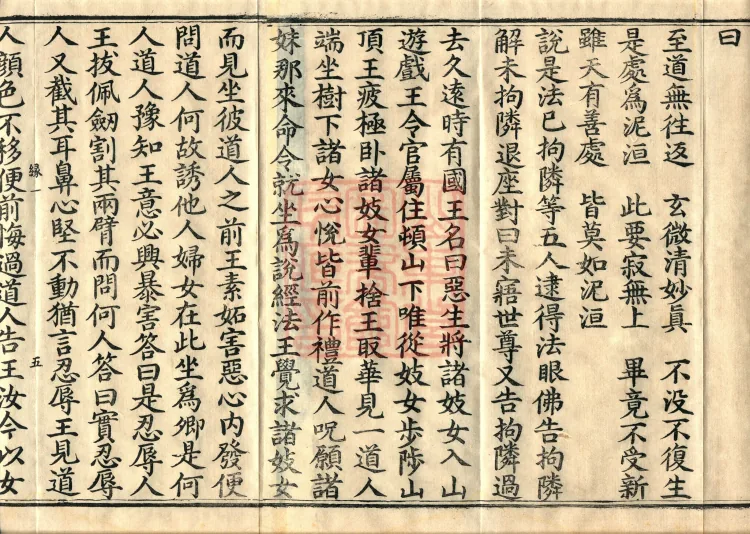 曰
至道無往返　玄微清妙眞　不没不復生
是處爲泥洹　此要寂無上　畢竟不受新
雖天有善處　皆莫如泥洹
說是法已拘隣等五人逮得法眼佛告拘隣
解未拘隣退座對曰未寤世尊又告拘隣過
去久遠時有國王名曰惡生將諸妓女入山
遊戲王令官屬住頓山下唯從妓女步陟山
頂王疲極卧諸妓女輩捨王取華見一道人
端坐樹下諸女心悅皆前作禮道人呪願諸
妹那來命令就坐爲說經法王覺求諸妓女
而見坐彼道人之前王素妬害惡心內發便
問道人何故誘他人婦女在此坐爲卿是何
人道人豫知王意必興暴害答曰是忍辱人
王拔佩劒割其兩臂而問何人答曰實忍辱
人又截其耳鼻心堅不動猶言忍辱王見道
縁一　五
人顔色不移便前悔過道人告王汝今以女